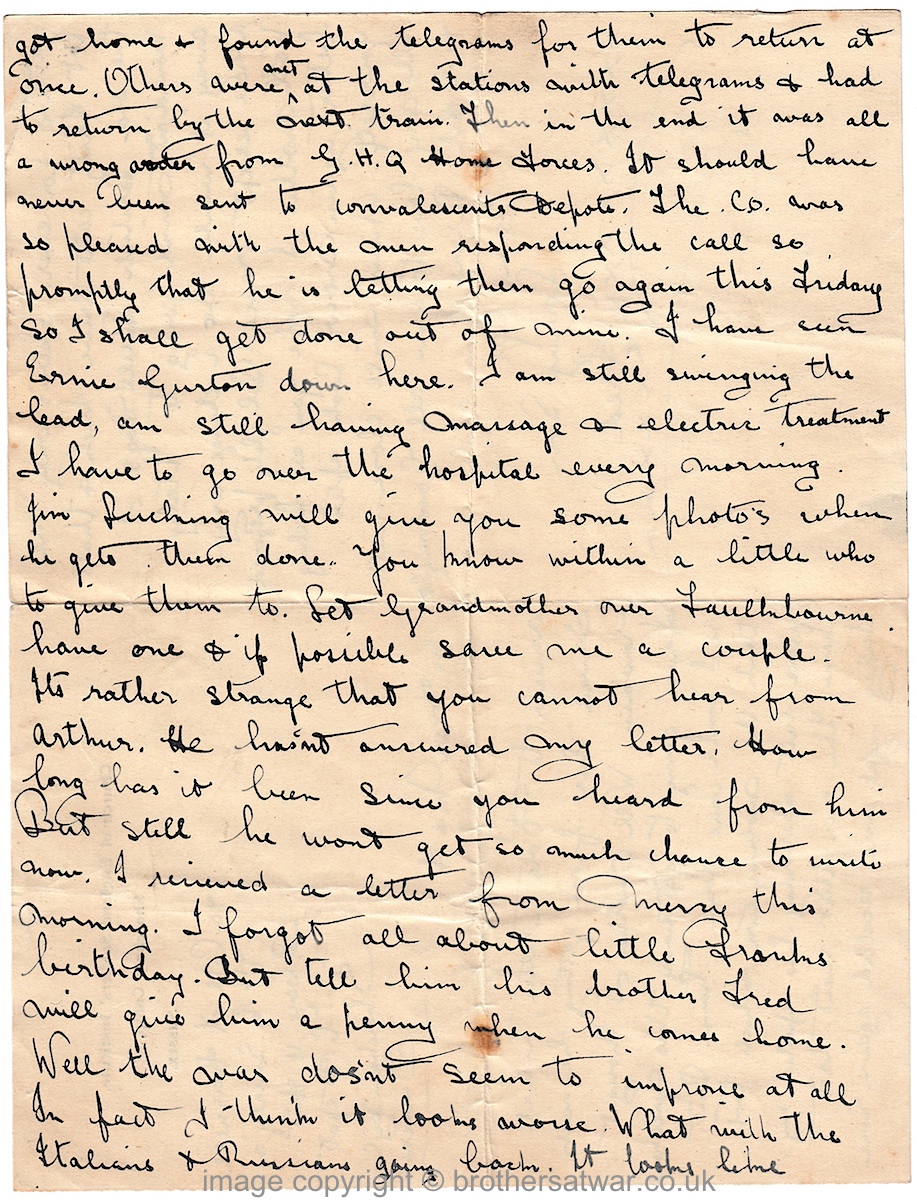 got home & found the telegrams for them to return at
once. Others were met at the stations with telegrams & had
to return by the next train. Then in the end it was all
a wrong order from G.H.Q Home Forces. It should have
never been sent to convalescents Depots. The C.O. was
so pleased with the men responding the call so
promptly that he is letting them go again this Friday
So I shall get done out of mine. I have seen
Ernie Gurton down here. I am still swinging the
lead, am still having massage & electric treatment
I have to go over the hospital every morning.
Jim Lucking will give you some photo's when
he gets them done.. You know within a little who
to give them to. Let Grandmother over Faulknbourne
have one & if possible save me a couple.
Its rather strange that you cannot hear from
Arthur. He hasnt answered my letter. How
long has it been since you heard from him
But still he wont get so much chance to write
now. I recieved a letter from Mersy this
morning. I forgot all about little Franks
birthday. But tell him his brother Fred
will give him a penny when he comes home.
Well the war dosnt seem to improve at all
In fact I think it looks worse. What with the
Italians & Russians going back. It looks like
image copyright © brothersatwar.co.uk